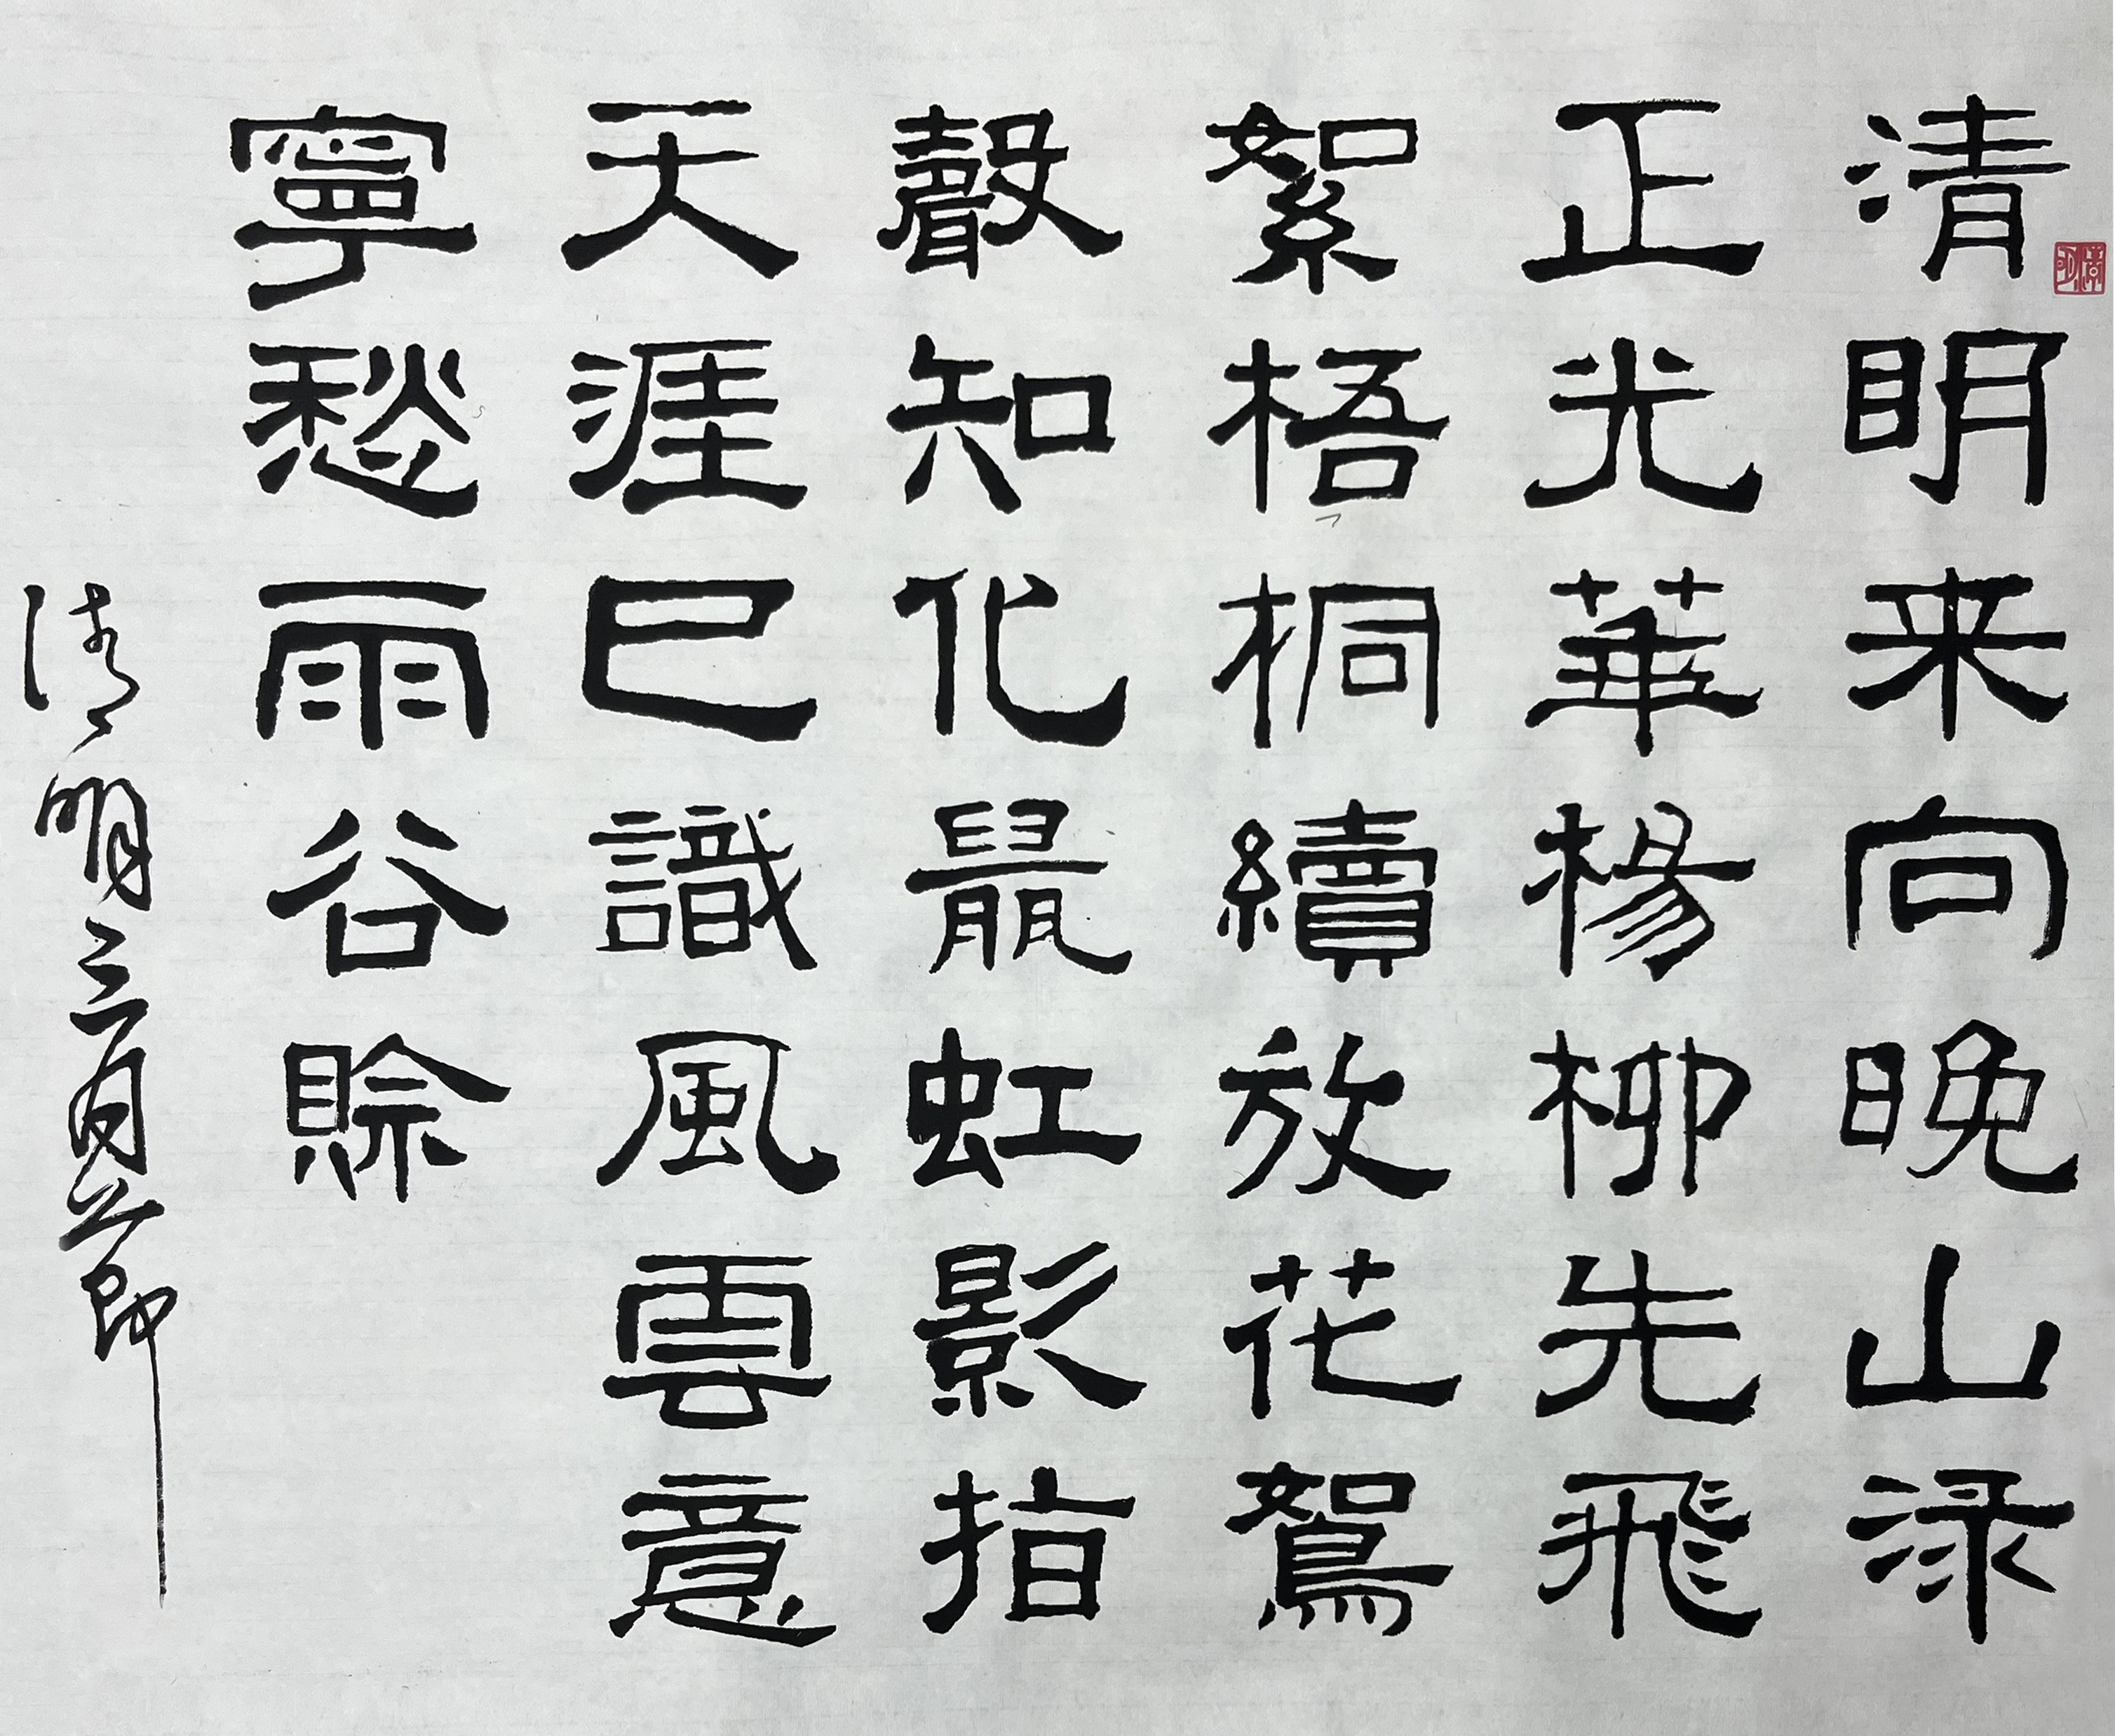 清明来向晚山渌
正光華楊柳先飛
絮梧桐續放花鴽
聲知化鼠虹影指
天涯已識風雲意
寧愁雨谷賒
清明三月節